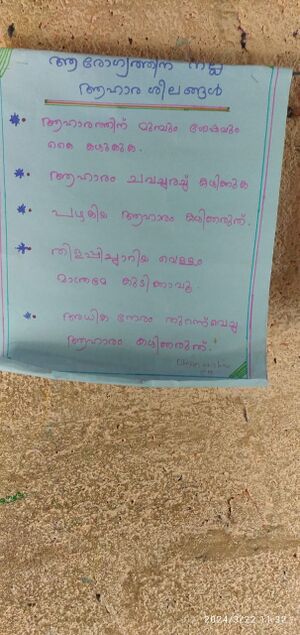 ആരോഗ്യത്തിന് നല്ല
ആഹാര ശീലങ്ങൾ
ആഹാരത്തിന് മുമ്പും ശേഷവും
കൈ കഴുകുക.
ആഹാരം ചവച്ചരച്ച് കഴിക്കുക
പഴകിയ ആഹാരം കഴിക്കരുത്.
തിളപ്പിച്ചാറിയ വെള്ളം
മാത്രമേ കുടിക്കാവൂ.
അധിക നേരം തുറന്നുവെച്ച
ആഹാരം കഴിക്കരുത്.
2024/3/22 11:32